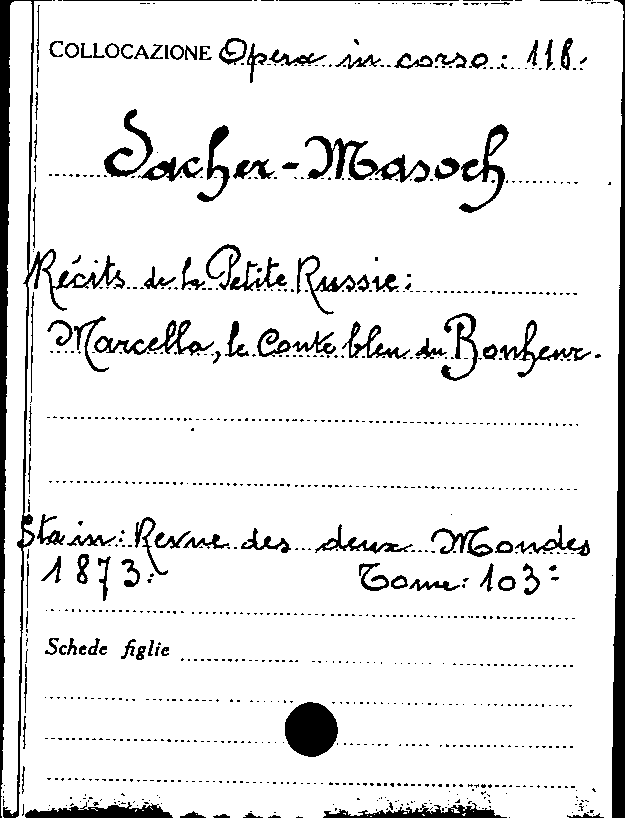 COLLOCAZIONE Opera in corso: 118.
Sacher-Masoch
Récits de la Petite Russie:
Marcella, le Conte bleu du Bonheur.
Sta in: Revue des deux Mondes
1873: Tome: 103:
Schede figlie